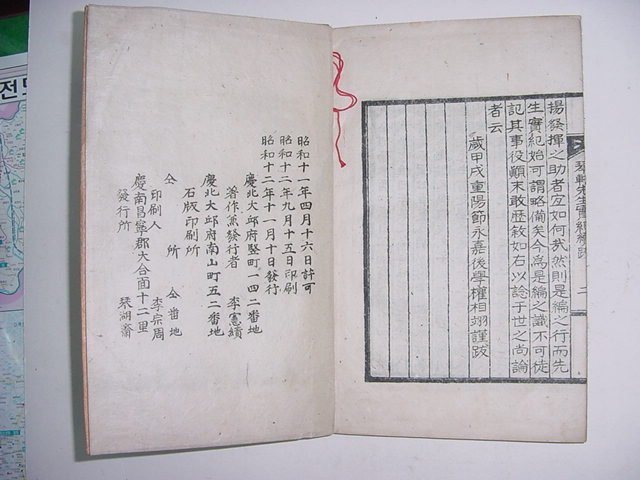 揚發揮之助者宜如何哉然則是編之行而先
生實紀始可謂略備矣今爲是編之識不可徒
記其事役顚末敢歷敘如右以諗于世之尙論
者云
歲甲戌重陽節永嘉後學權相翊謹跋
昭和十一年四月十六日許可
昭和十二年九月十五日印刷
昭和十二年十一月十日發行
慶北大邱府竪町一四二番地
著作兼發行者 李憲績
慶北大邱府南山町五二番地
石版印刷所
仝 所 仝番地
印刷人 李宗周
慶南昌寧郡大合面十二里
發行所 琴湖齋
전도